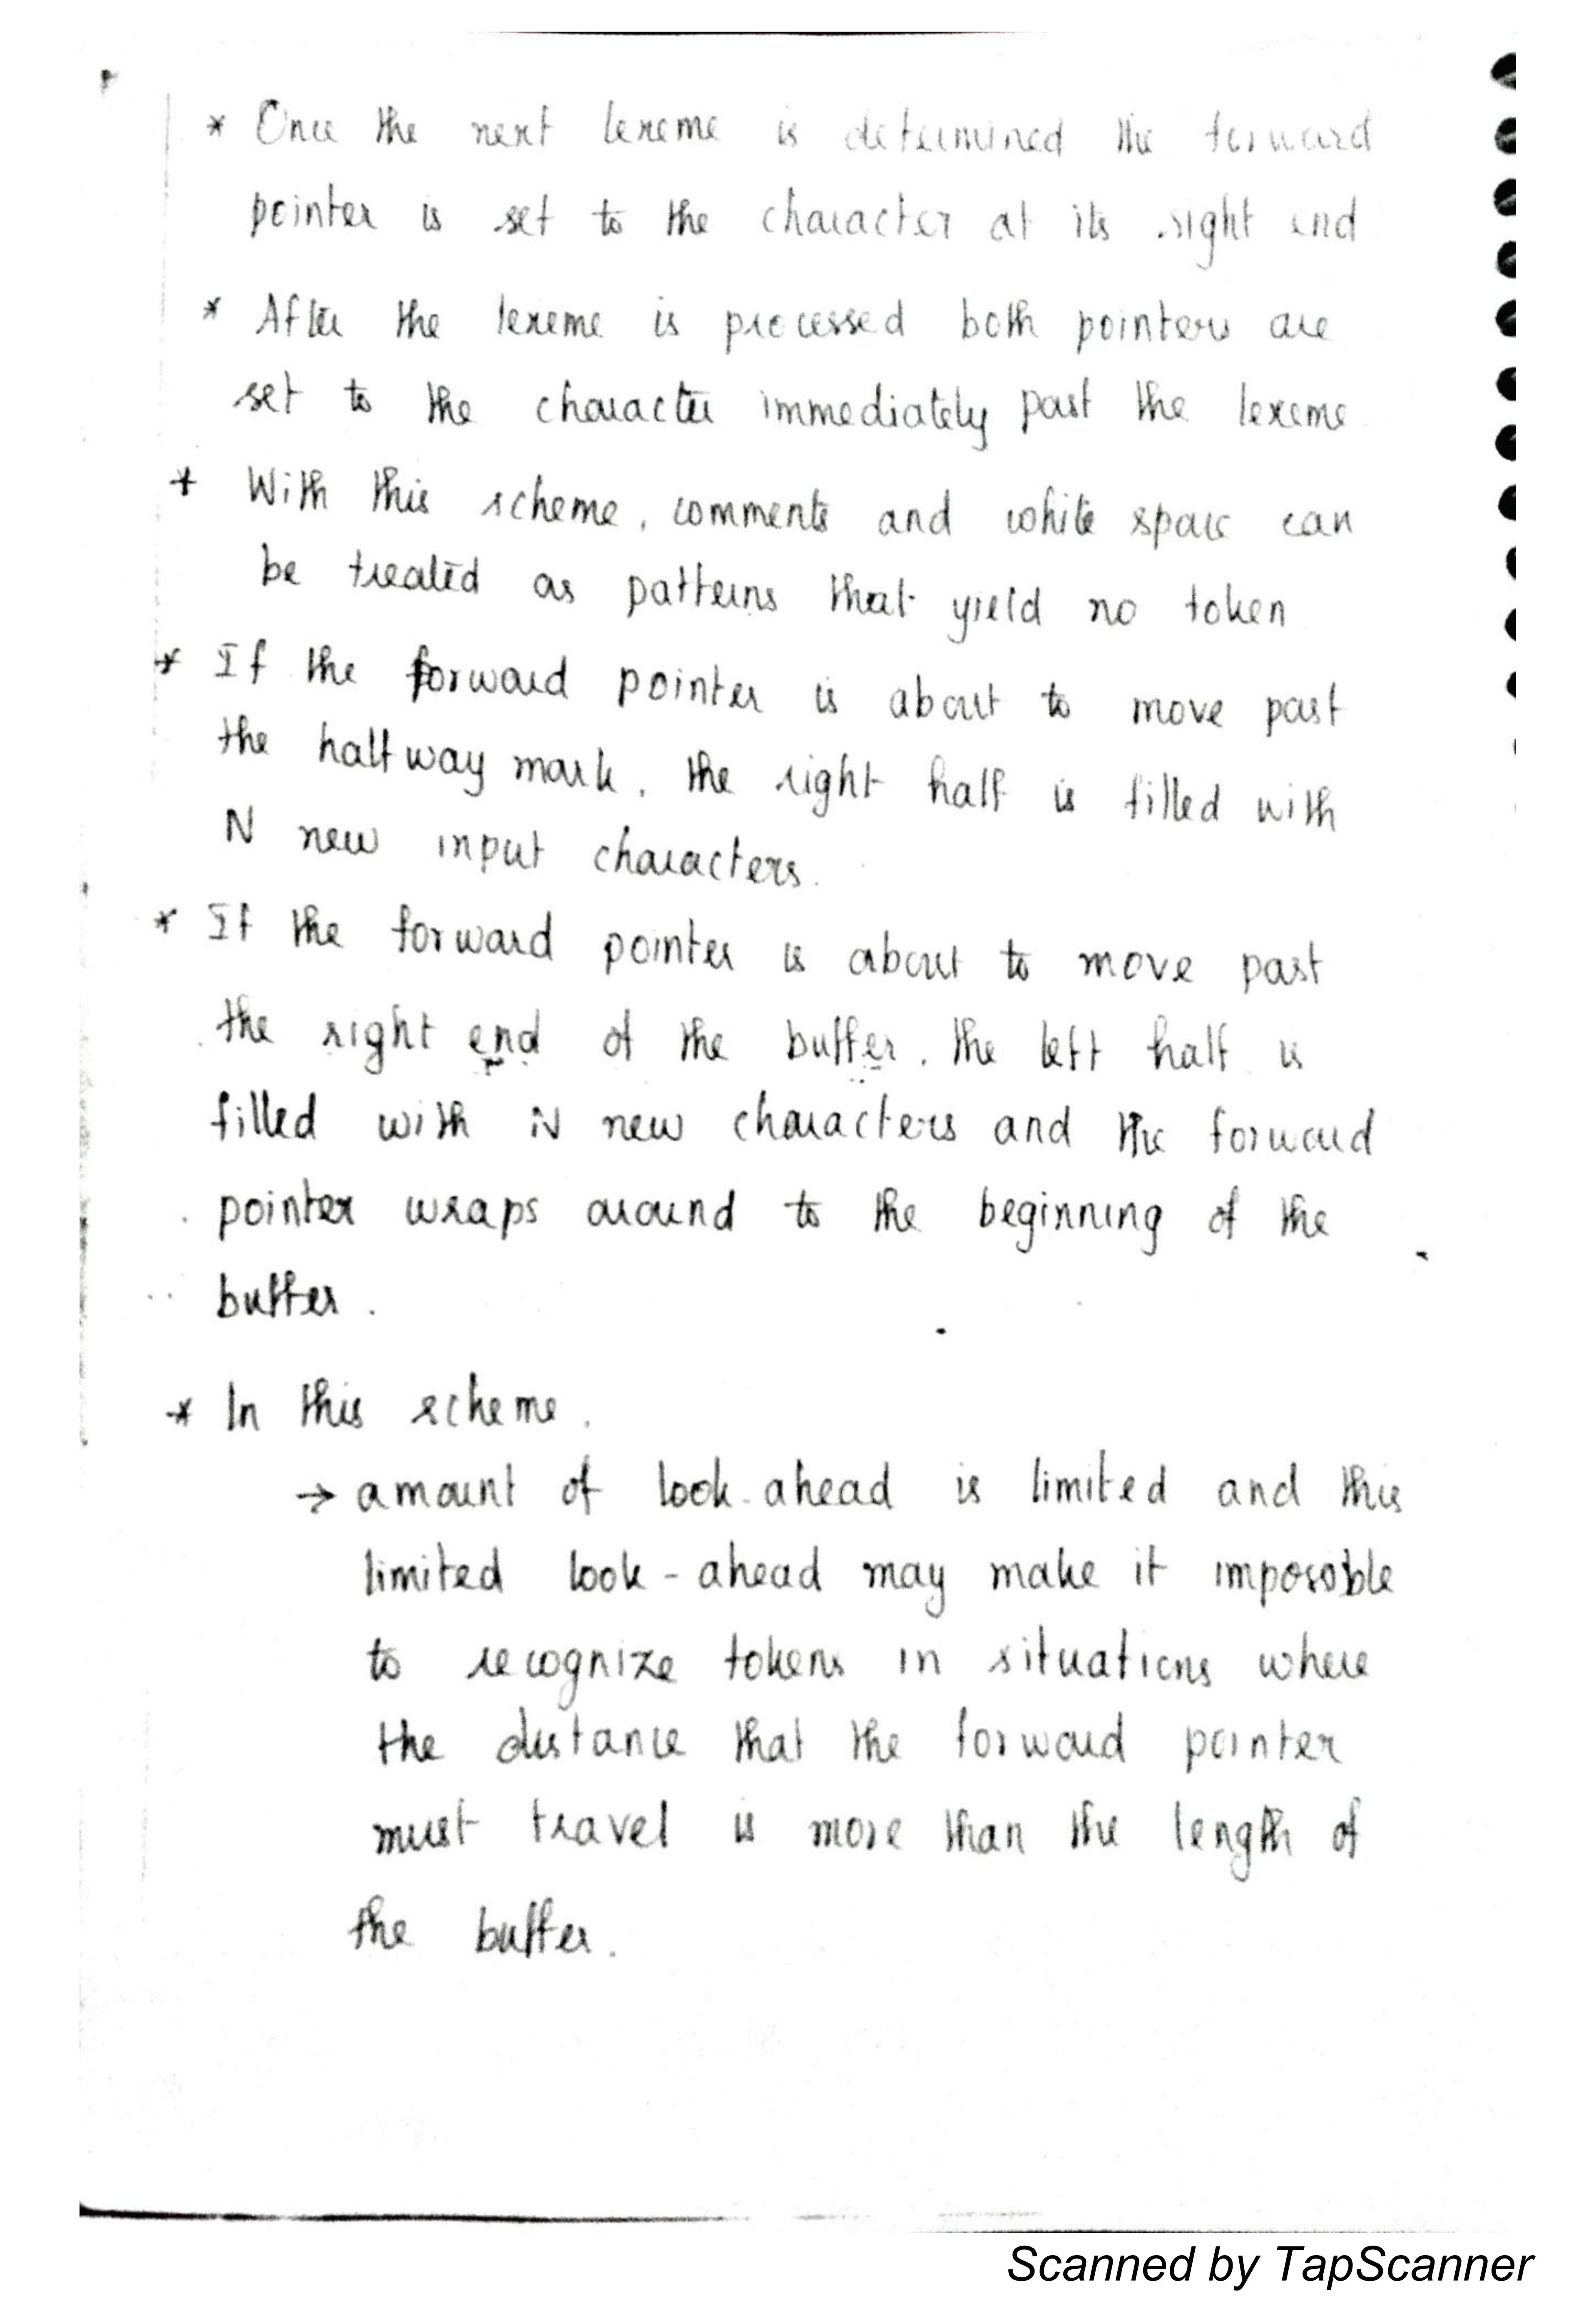 * Once the next lexeme is determined the forward
pointer is set to the character at its right end
* After the lexeme is processed both pointers are
set to the character immediately past the lexeme
* With this scheme, comments and white space can
be treated as patterns that yield no token
* If the forward pointer is about to move past
the halfway mark, the right half is filled with
N new input characters.
* If the forward pointer is about to move past
the right end of the buffer, the left half is
filled with N new characters and the forward
pointer wraps around to the beginning of the
buffer.
* In this scheme,
→ amount of look-ahead is limited and this
limited look-ahead may make it impossible
to recognize tokens in situations where
the distance that the forward pointer
must travel is more than the length of
the buffer.
Scanned by TapScanner